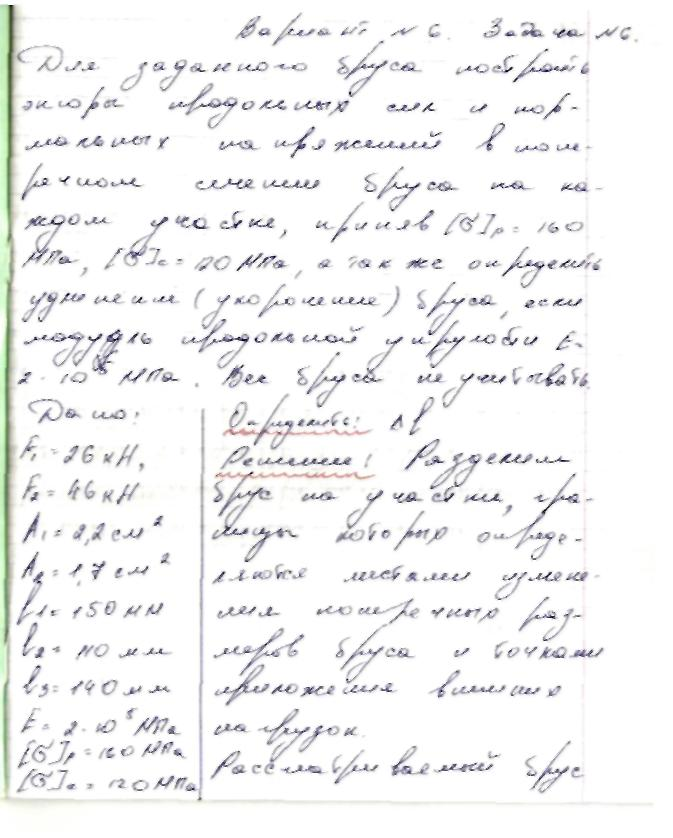 Вариант №6. Задача №6.
Для заданного бруса построить
эпюры продольных сил и нор-
мальных напряжений в попе-
речном сечение бруса на ка-
ждом участке, приняв [σ]р = 160
МПа, [σ]с = 120 МПа, а также определить
удлинение (укорочение) бруса, если
модудль продольной упругости E=
2·10⁵ МПа. Вес бруса не учитывать.
Дано:
F₁ = 26 кН,
F₂ = 46 кН
A₁ = 2,2 см²
A₂ = 1,7 см²
l₁ = 150 мм
l₂ = 110 мм
l₃ = 140 мм
E = 2·10⁵ МПа
[σ]р = 160 МПа
[σ]с = 120 МПа
Определить: Δl
Решение: Разделим
брус на участки, гра-
ницы которых опреде-
ляются местами измене-
ния поперечных раз-
меров бруса и точками
приложения внешних
нагрузок.
Рассматриваемый брус